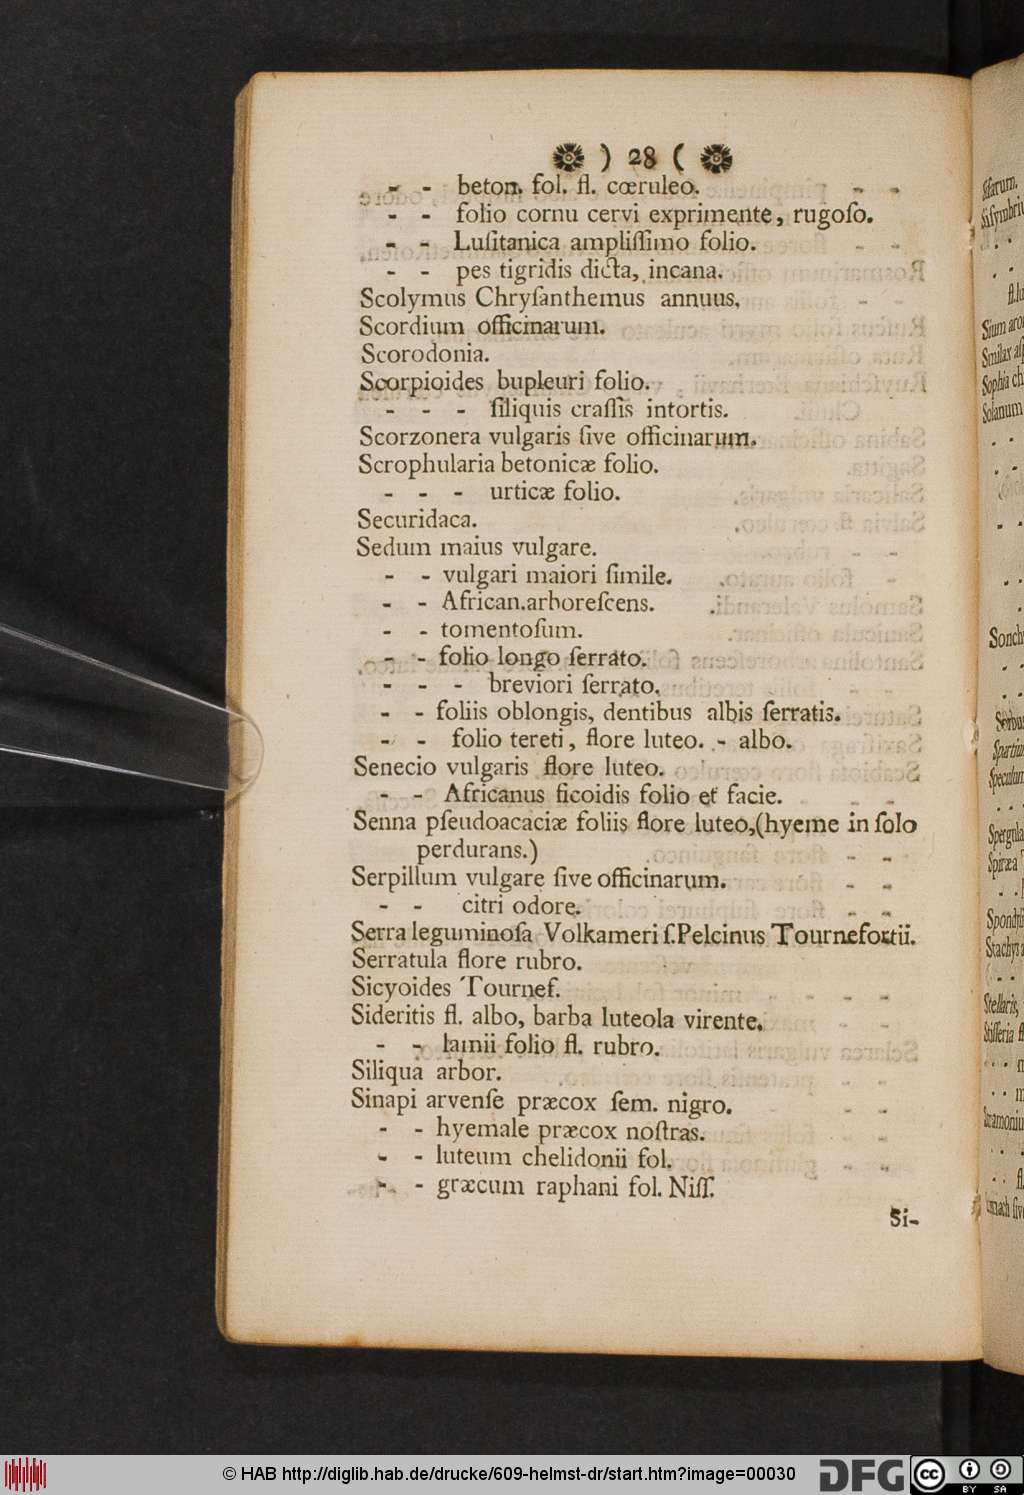 ) 28 (
- - beton. fol. fl. cœruleo.
- - folio cornu cervi exprimente, rugoſo.
- - Luſitanica ampliſſimo folio.
- - pes tigridis dicta, incana.
Scolymus Chryſanthemus annuus.
Scordium officinarum.
Scorodonia.
Scorpioides bupleuri folio.
- - - ſiliquis craſſis intortis.
Scorzonera vulgaris ſive officinarum.
Scrophularia betonicæ folio.
- - - urticæ folio.
Securidaca.
Sedum maius vulgare.
- - vulgari maiori ſimile.
- - African.arboreſcens.
- - tomentoſum.
- - folio longo ſerrato.
- - - breviori ſerrato.
- - foliis oblongis, dentibus albis ſerratis.
- - folio tereti, flore luteo. - albo.
Senecio vulgaris flore luteo.
- - Africanus ficoidis folio et facie.
Senna pſeudoacaciæ foliis flore luteo,(hyeme in ſolo
perdurans.)
Serpillum vulgare ſive officinarum.
- - citri odore.
Serra leguminoſa Volkameri ſ.Pelcinus Tournefortii.
Serratula flore rubro.
Sicyoides Tournef.
Sideritis fl. albo, barba luteola virente.
- - lamii folio fl. rubro.
Siliqua arbor.
Sinapi arvenſe præcox ſem. nigro.
- - hyemale præcox noſtras.
- - luteum chelidonii fol.
- - græcum raphani fol. Niſſ.
Si-
© HAB http://diglib.hab.de/drucke/609-helmst-dr/start.htm?image=00030
DFG
CC BY SA